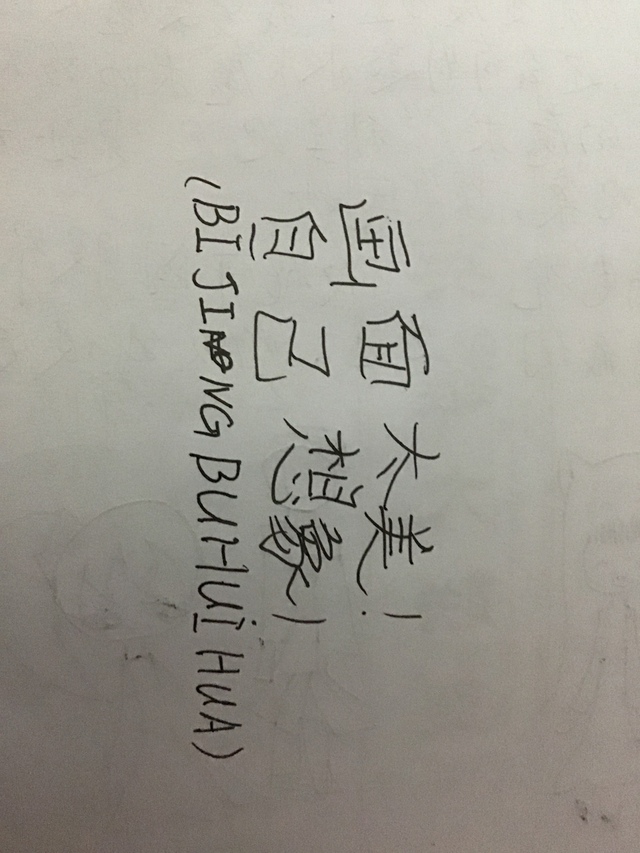 画面太美!
自己想象!
(BIJINGBUHUIHUA)